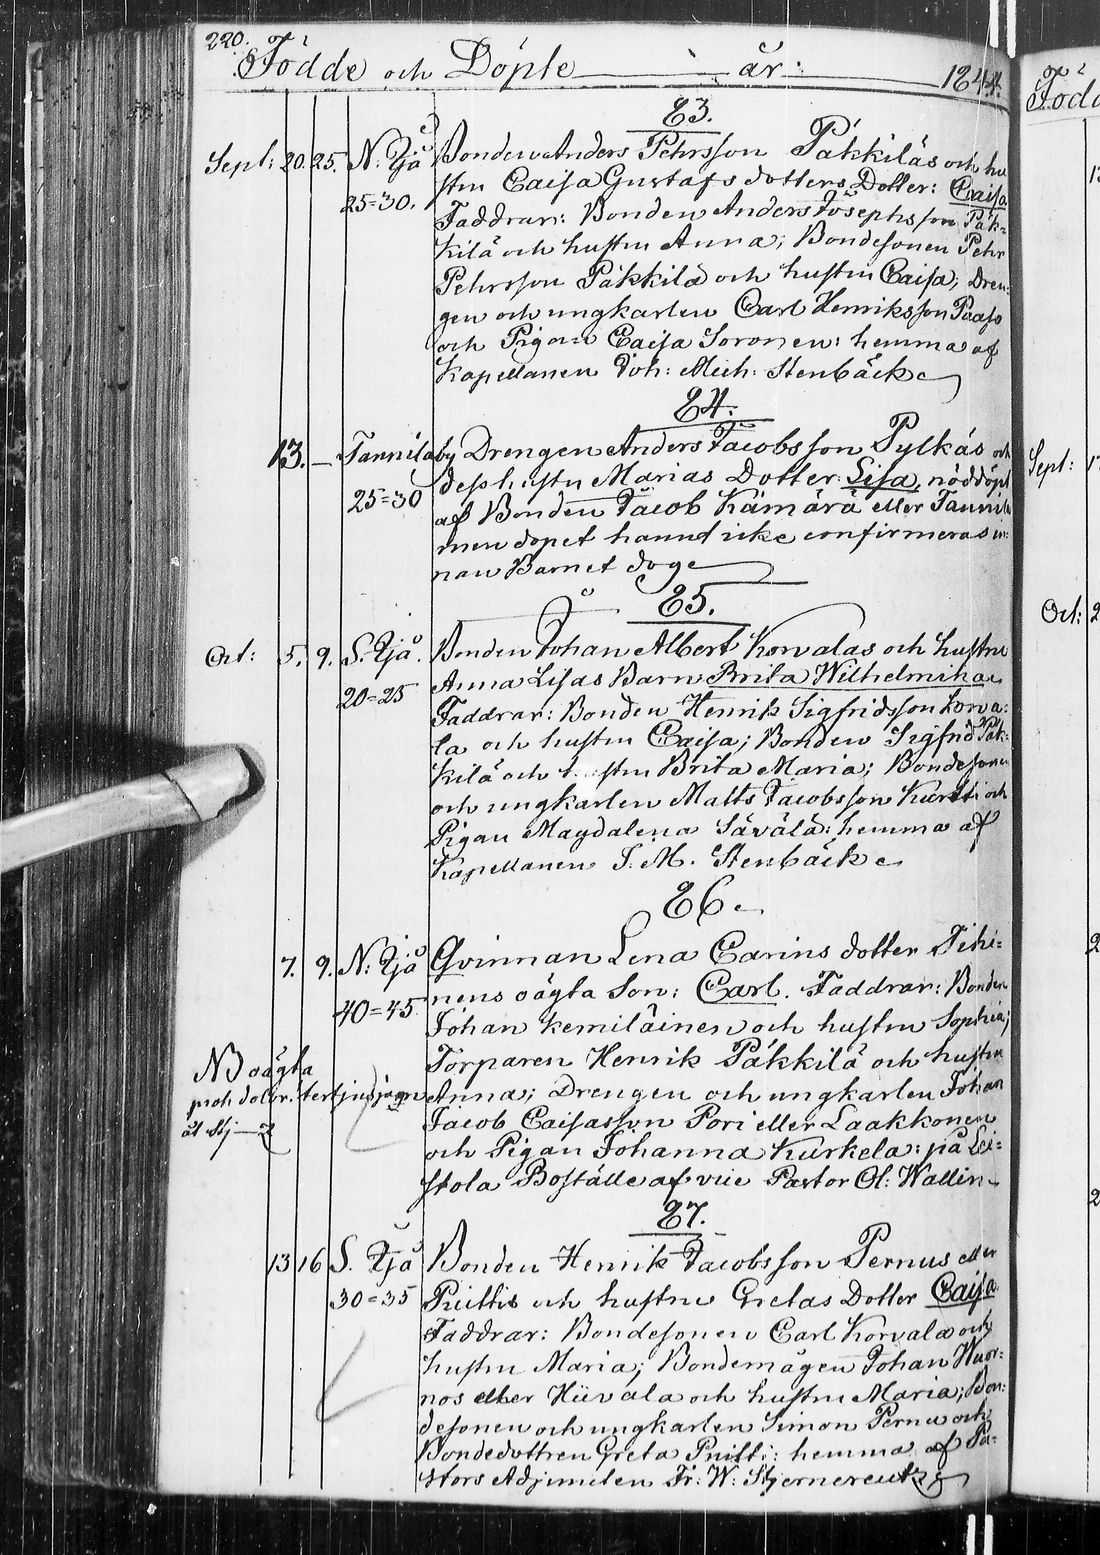 220.
Födde och Döpte år: 1844.
83.
Sept: 20. 25. N: Ijå Bonden Anders Pehrsson Päkkiläs och hu
25=30. strn Caisa Gustafs dotters Dotter: Caisa
Faddrar: Bonden Anders Josephsson Päk=
kilä och hustrn Anna; Bondesonen Pehr
Pehrsson Päkkilä och hustrn Caisa; Dren=
gen och ungkarlen Carl Henriksson Paaso
och Pigan Caisa Soronen: hemma af
Kapellanen Joh: Mich: Stenbäck
84.
13. — Tannilaby Drengen Anders Jacobsson Pylkäs och
25=30 dess hustru Marias Dotter Lisa, nöddöpt
af Bonden Jacob Kämärä eller Tannila
men dopet hannd icke confirmeras in=
nan Barnet dog
85.
Oct: 5. 9. S. Ijå. Bonden Johan Albert Korvalas och hustru
20=25 Anna Lisas Barn Brita Wilhelmina
Faddrar: Bonden Henrik Sigfridsson Korva=
la och hustrn Caisa; Bonden Sigfrid Päk=
kilä och hustrn Brita Maria; Bondesonen
och ungkarlen Matts Jacobsson Kurtti och
Pigan Magdalena Sävälä: hemma af
Kapellanen J. M. Stenbäck
86
7. 9. N: Ijå Qvinnan Lena Carins dotter Tihi=
40=45 nens oägta Son: Carl. Faddrar: Bonden
Johan Kemiläinen och hustrn Sophia;
Torparen Henrik Päkkilä och hustrn
NB oägta
Anna; Drengen och ungkarlen Johan
Jacob Caisasson Pori eller Laakkonen
och Pigan Johanna Kurkela: på Lei=
skola Boställe af vice Pastor Ol: Wallin
87.
13 16 S. Ijå Bonden Henrik Jacobsson Pernus eller
30=35 Priittis och hustru Gretas Dotter Caisa
Faddrar: Bondesonen Carl Korvala och
hustrn Maria; Bondemågen Johan Wuor=
nos eller Hiivala och hustru Maria; Bon=
desonen och ungkarlen Simon Pernu och
Bondedottren Greta Priitti: hemma af Pa=
stors Adjuncten Fr: W: Stjerncreutz
Född
Sept:
Oct: